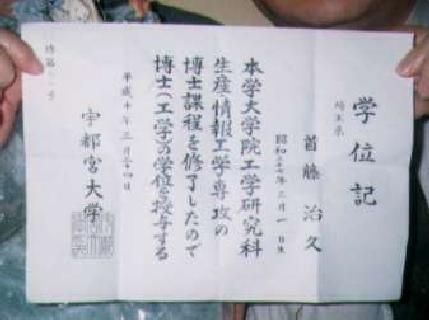 学位記
埼玉県
首藤治久
昭和
年三月一日生
本学大学院工学研究科
生産・情報工学専攻の
博士課程を修了したので
博士(工学)の学位を授与する
平成十年三月二十四日
宇都宮大学